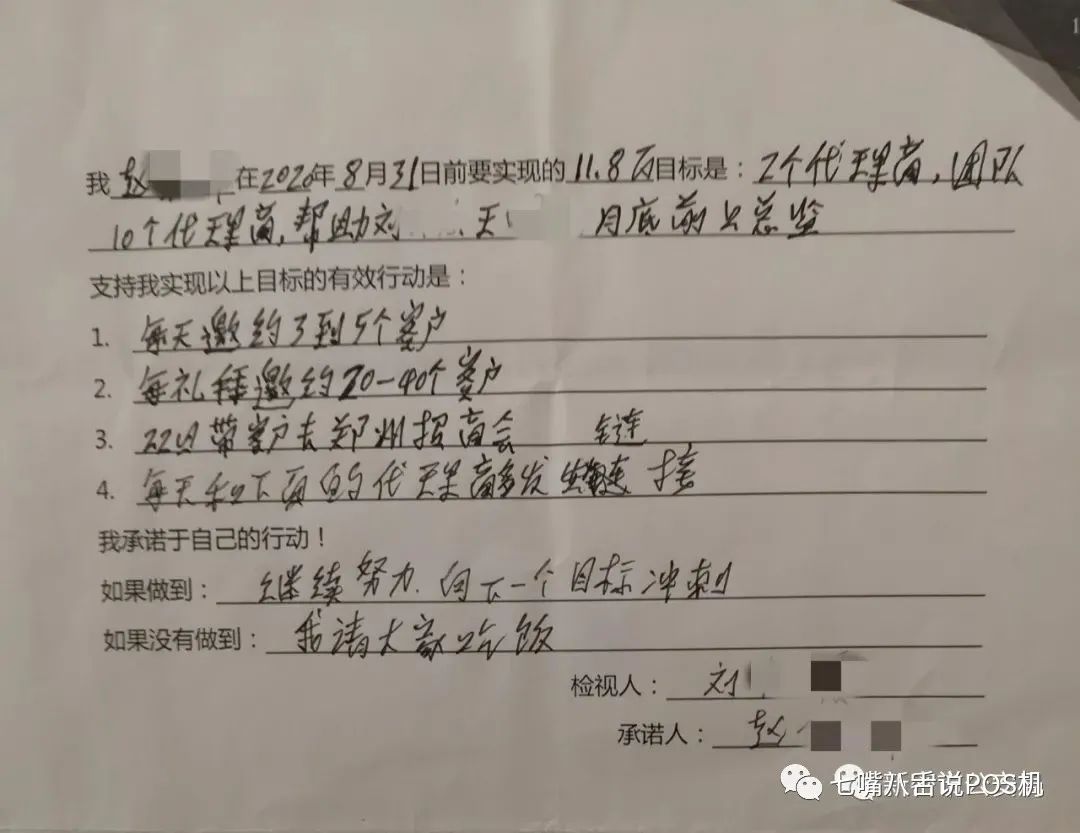 我赵 在2020年8月31日前要实现的11.8万目标是：2个代理商，团队
10个代理商，帮助刘 天 月底前上总监
支持我实现以上目标的有效行动是：
1. 每天邀约3到5个客户
2. 每礼拜邀约20-40个客户
3. 22日带客户去郑州招商会 链
4. 每天和下面的代理商多发 接
我承诺于自己的行动！
如果做到：继续努力.向下一个目标冲刺
如果没有做到：我请大家吃饭
检视人：刘
承诺人：赵
说POS机